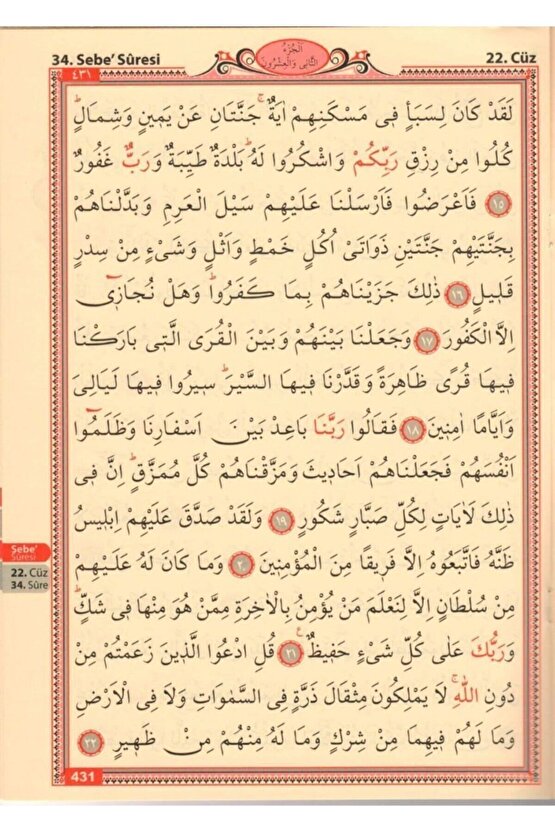 34. Sebe' Sûresi
اَلْجُزْءُ
الثَّانِى وَالْعِشْرُونَ
22. Cüz
٤٣١
لَقَدْ كَانَ لِسَبَأٍ فٖى مَسْكَنِهِمْ اٰيَةٌۚ جَنَّتَانِ عَنْ يَمٖينٍ وَشِمَالٍؕ
كُلُوا مِنْ رِزْقِ رَبِّكُمْ وَاشْكُرُوا لَهُؕ بَلْدَةٌ طَيِّبَةٌ وَرَبٌّ غَفُورٌ
﴿١٥﴾ فَاَعْرَضُوا فَاَرْسَلْنَا عَلَيْهِمْ سَيْلَ الْعَرِمِ وَبَدَّلْنَاهُمْ
بِجَنَّتَيْهِمْ جَنَّتَيْنِ ذَوَاتَىْ اُكُلٍ خَمْطٍ وَاَثْلٍ وَشَىْءٍ مِنْ سِدْرٍ
قَلٖيلٍ ﴿١٦﴾ ذٰلِكَ جَزَيْنَاهُمْ بِمَا كَفَرُواؕ وَهَلْ نُجَازٖٓى
اِلَّا الْكَفُورَ ﴿١٧﴾ وَجَعَلْنَا بَيْنَهُمْ وَبَيْنَ الْقُرَى الَّتٖى بَارَكْنَا
فٖيهَا قُرًى ظَاهِرَةً وَقَدَّرْنَا فٖيهَا السَّيْرَؕ سٖيرُوا فٖيهَا لَيَالِىَ
وَاَيَّامًا اٰمِنٖينَ ﴿١٨﴾ فَقَالُوا رَبَّنَا بَاعِدْ بَيْنَ اَسْفَارِنَا وَظَلَمُٓوا
اَنْفُسَهُمْ فَجَعَلْنَاهُمْ اَحَادٖيثَ وَمَزَّقْنَاهُمْ كُلَّ مُمَزَّقٍؕ اِنَّ فٖى
ذٰلِكَ لَاٰيَاتٍ لِكُلِّ صَبَّارٍ شَكُورٍ ﴿١٩﴾ وَلَقَدْ صَدَّقَ عَلَيْهِمْ اِبْلٖيسُ
ظَنَّهُ فَاتَّبَعُوهُ اِلَّا فَرٖيقًا مِنَ الْمُؤْمِنٖينَ ﴿٢٠﴾ وَمَا كَانَ لَهُ عَلَيْهِمْ
مِنْ سُلْطَانٍ اِلَّا لِنَعْلَمَ مَنْ يُؤْمِنُ بِالْاٰخِرَةِ مِمَّنْ هُوَ مِنْهَا فٖى شَكٍّؕ
وَرَبُّكَ عَلٰى كُلِّ شَىْءٍ حَفٖيظٌ ﴿٢١﴾ قُلِ ادْعُوا الَّذٖينَ زَعَمْتُمْ مِنْ
دُونِ اللّٰهِۚ لَا يَمْلِكُونَ مِثْقَالَ ذَرَّةٍ فِى السَّمٰوَاتِ وَلَا فِى الْاَرْضِ
وَمَا لَهُمْ فٖيهِمَا مِنْ شِرْكٍ وَمَا لَهُ مِنْهُمْ مِنْ ظَهٖيرٍ ﴿٢٢﴾
Sebe'
Sûresi
22. Cüz
34. Sûre
431